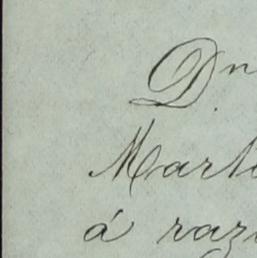 Dn
Marti
á razo